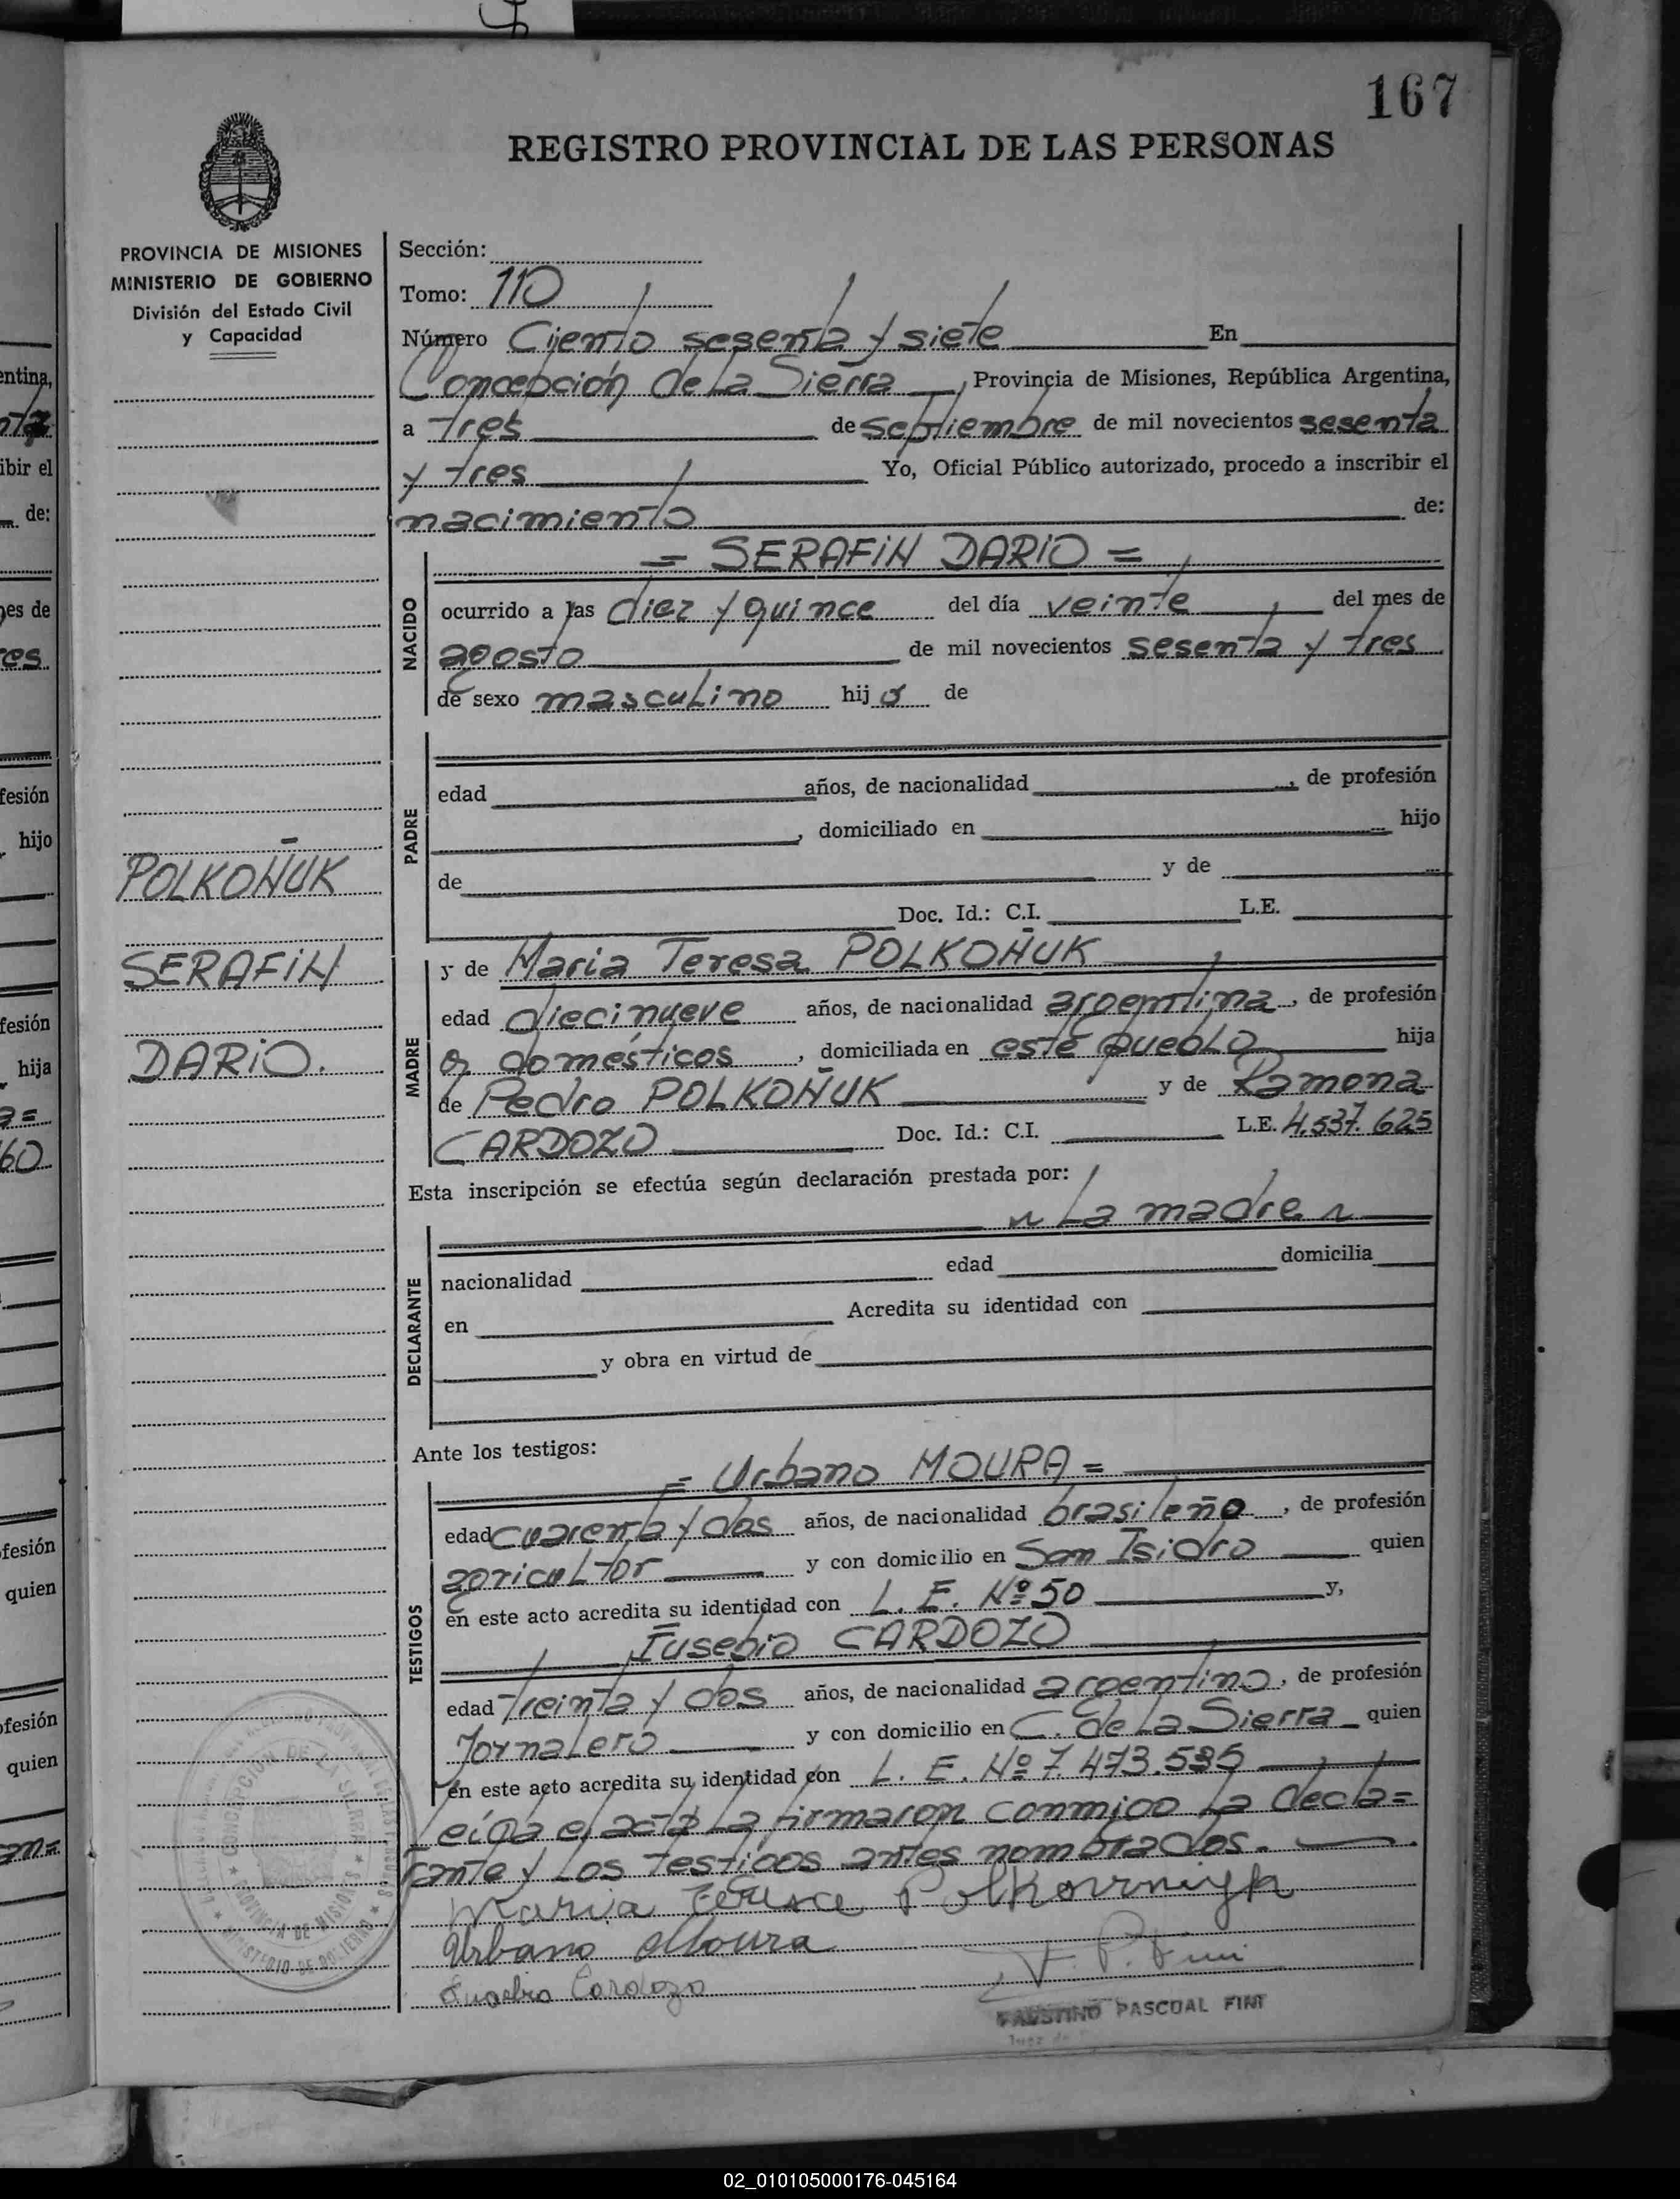 167
REGISTRO PROVINCIAL DE LAS PERSONAS
PROVINCIA DE MISIONES
MINISTERIO DE GOBIERNO
División del Estado Civil
y Capacidad
POLKOÑUK
SERAFIN
DARIO.
Sección:
Tomo: 110
Número Ciento sesenta y siete En
Concepción de La Sierra, Provincia de Misiones, República Argentina,
a tres de septiembre de mil novecientos sesenta
y tres Yo, Oficial Público autorizado, procedo a inscribir el
nacimiento de:
NACIDO
= SERAFIN DARIO =
ocurrido a las diez y quince del día veinte del mes de
agosto de mil novecientos sesenta y tres
de sexo masculino hijo de
PADRE
edad años, de nacionalidad , de profesión
, domiciliado en hijo
de y de
Doc. Id.: C.I. L.E.
MADRE
y de Maria Teresa POLKOÑUK
edad diecinueve años, de nacionalidad argentina, de profesión
q. domésticos, domiciliada en este pueblo hija
de Pedro POLKOÑUK y de Ramona
CARDOZO Doc. Id.: C.I. L.E. 4.537.625
Esta inscripción se efectúa según declaración prestada por:
La madre
DECLARANTE
nacionalidad edad domicilia
en Acredita su identidad con
y obra en virtud de
Ante los testigos:
TESTIGOS
= Urbano MOURA =
edad cuarenta y dos años, de nacionalidad brasileño, de profesión
agricultor y con domicilio en San Isidro quien
en este acto acredita su identidad con L. E. Nº 50 y,
Eusebio CARDOZO
edad treinta y dos años, de nacionalidad argentino, de profesión
Jornalero y con domicilio en C. de La Sierra quien
en este acto acredita su identidad con L. E. Nº 7.473.535
Leida el acta La firmaron conmigo La decla=
rante y Los testigos antes nombrados.
Urbano Moura
Eusebio Cardozo
F. P. Fini
FAUSTINO PASCUAL FINI
CONCEPCION DE LA SIERRA
PROVINCIA DE MISIONES
02_010105000176-045164